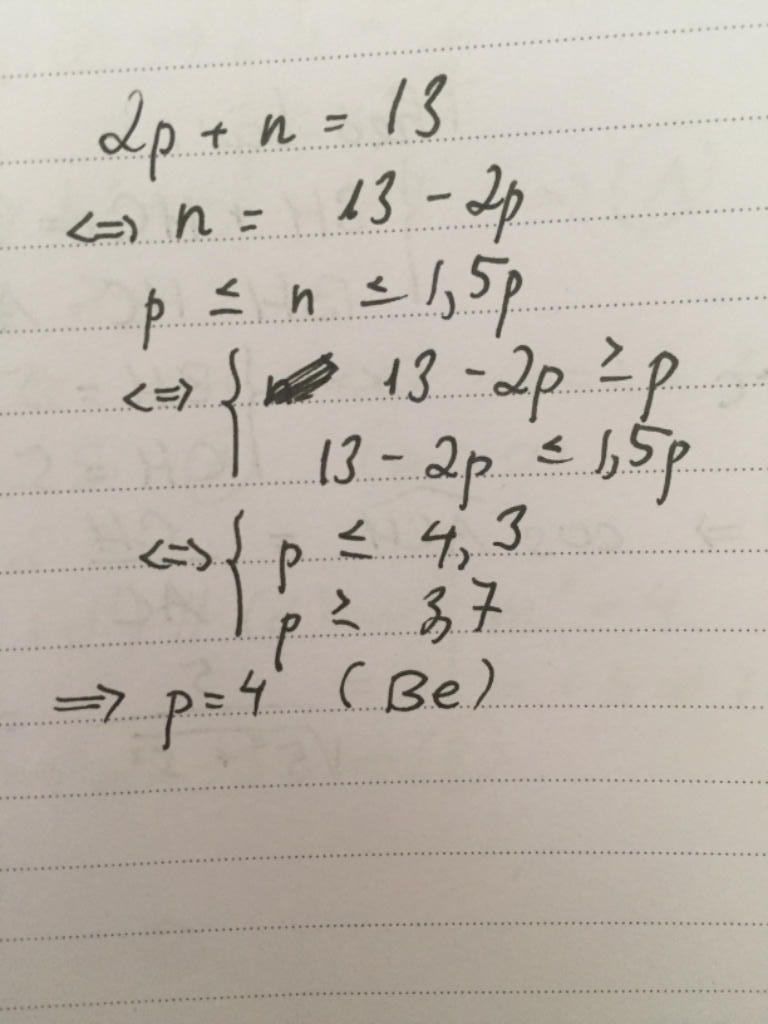 2p + n = 13
<=> n = 13 - 2p
p ≤ n ≤ 1,5p
<=> { 13 - 2p ≥ p
13 - 2p ≤ 1,5p
<=> { p ≤ 4,3
p ≥ 3,7
=> p = 4 (Be)